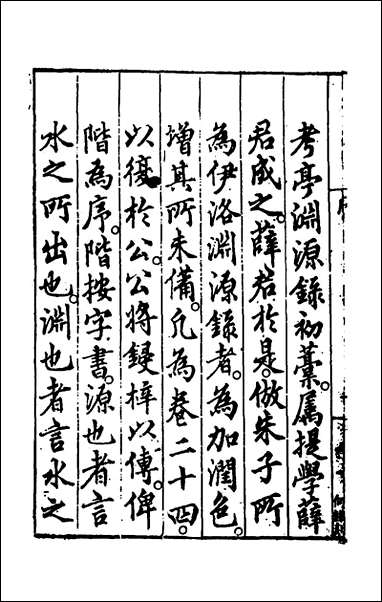 考亭淵源錄初藁。屬提學薛
君成之。薛君於是。倣朱子所
為伊洛淵源錄者。為加潤色。
增其所未備。凡為卷二十四。
以復於公。公將鋟梓以傳。俾
階為序。階按字書。源也者言
水之所出也。淵也者言水之